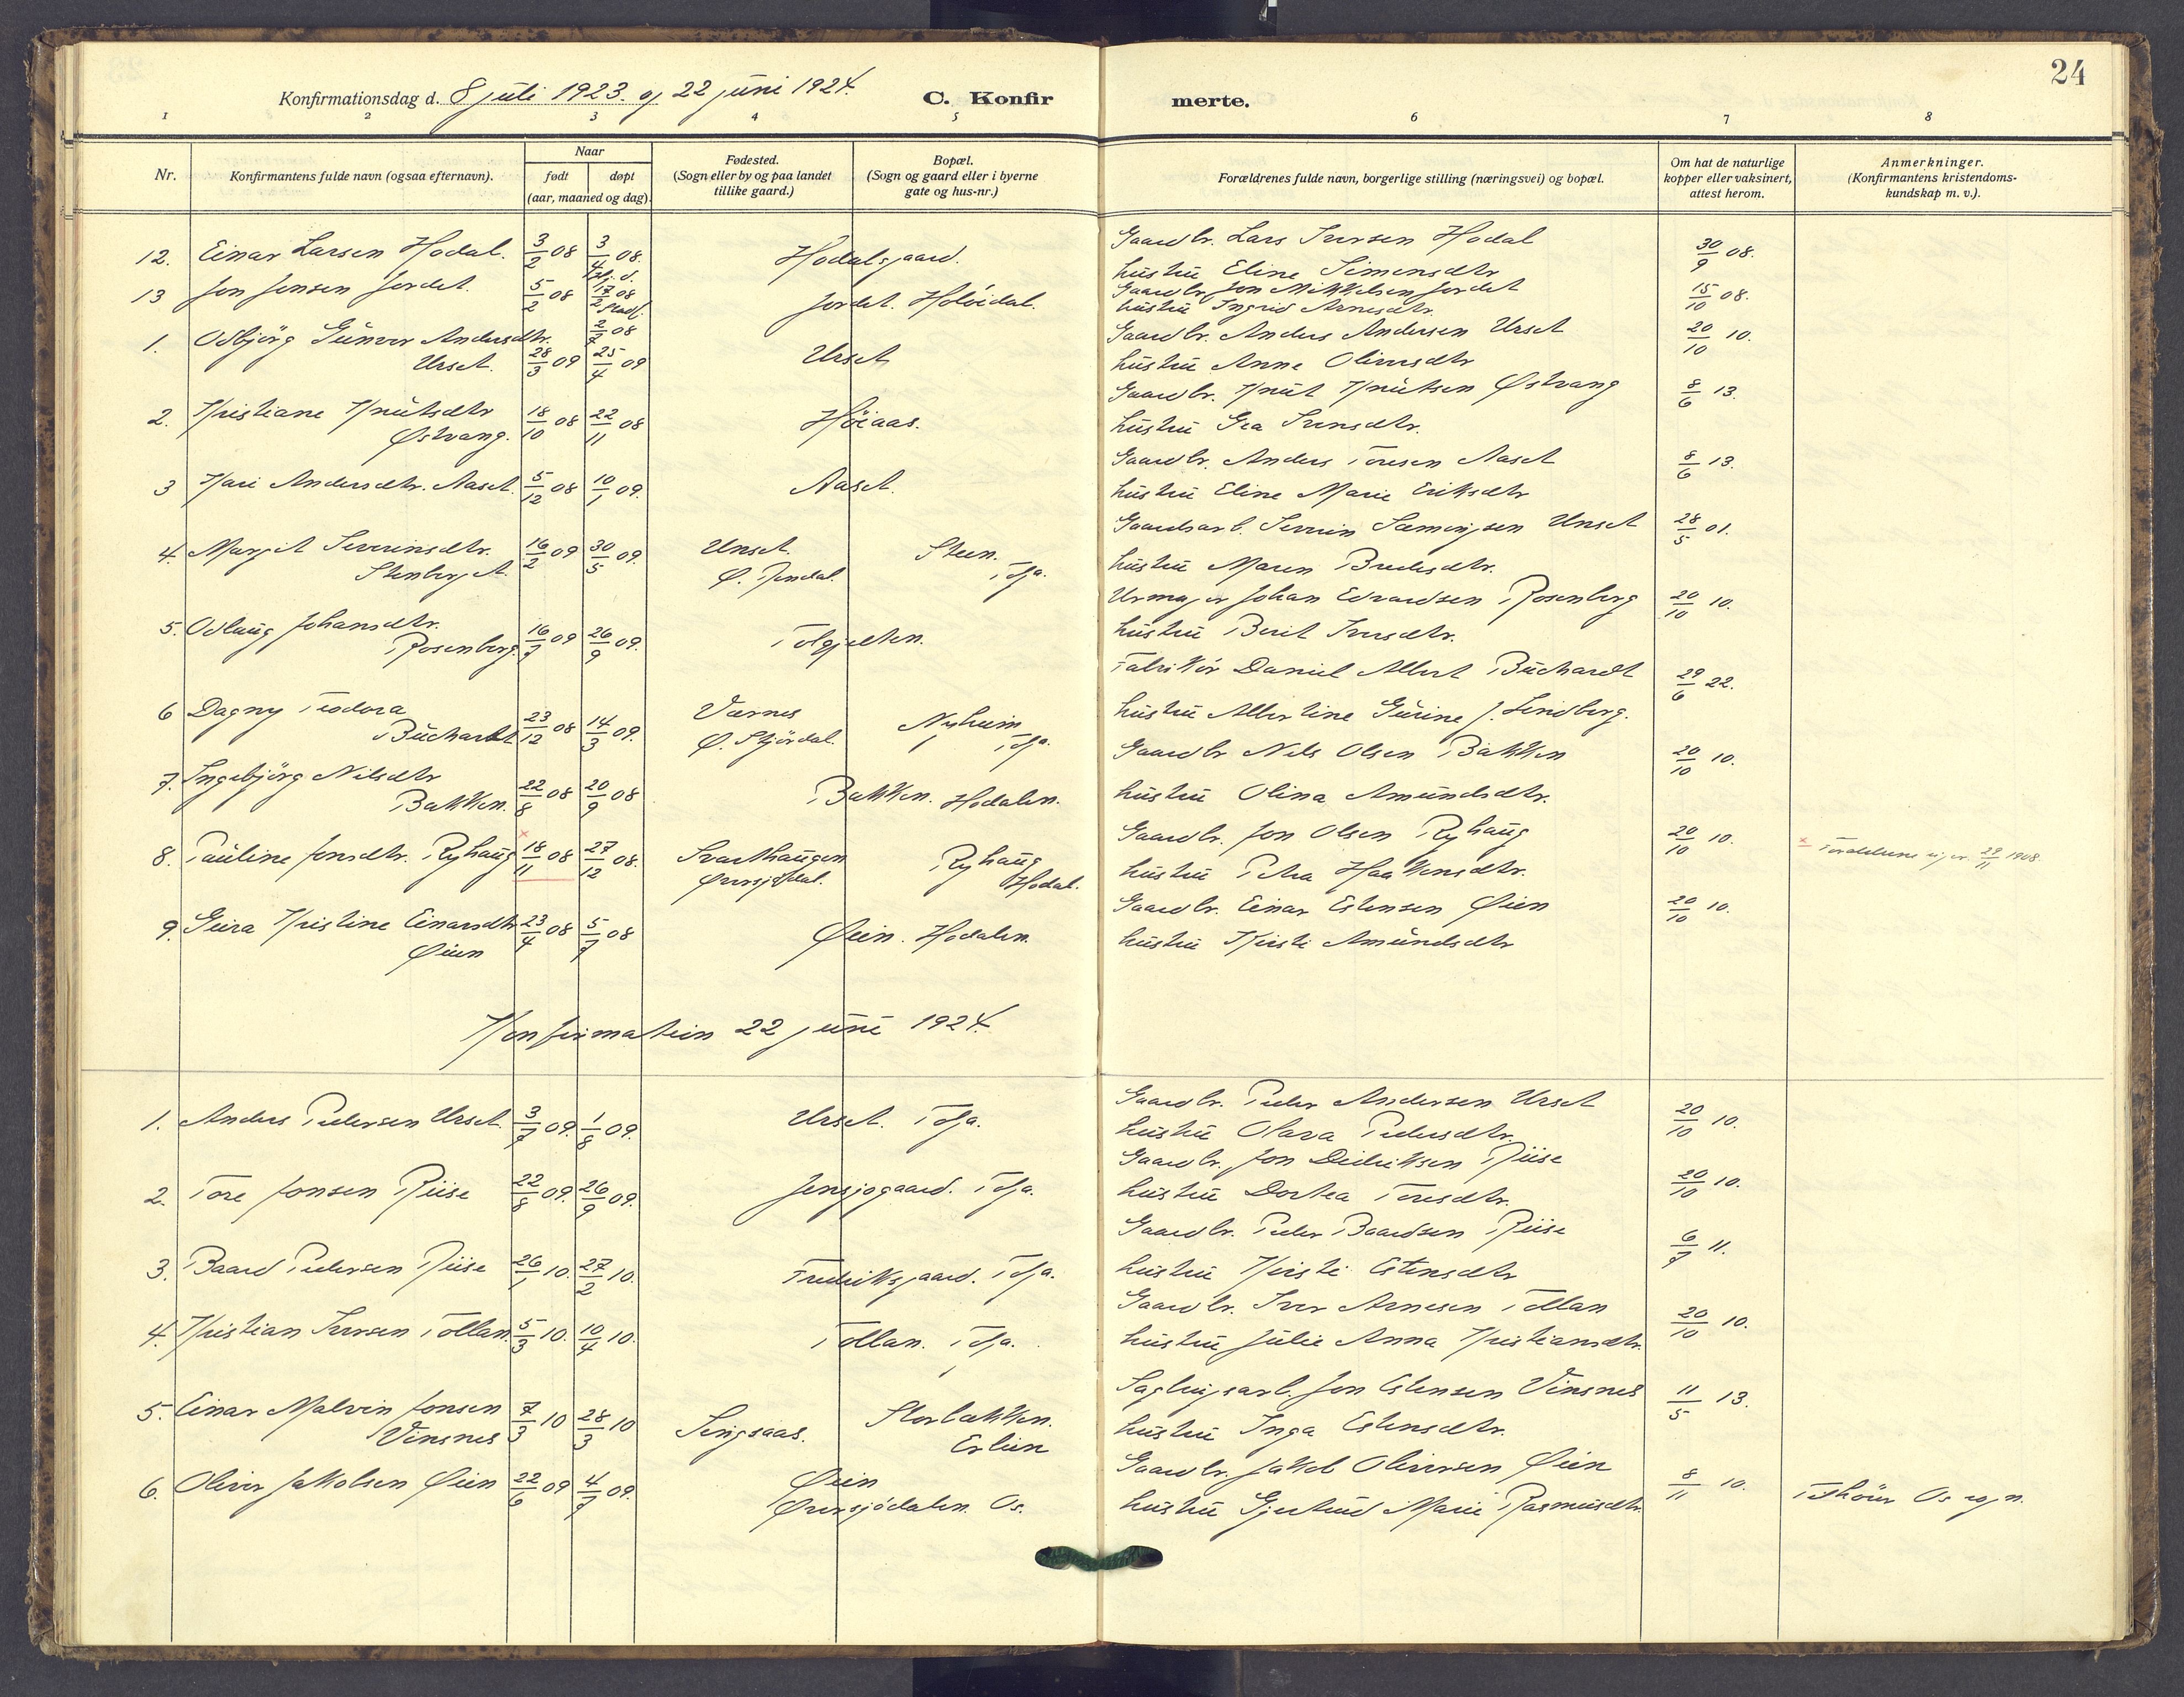 24
Konfirmationsdag d. 8 juli 1923. og 22 juni 1924. C. Konfirmerte.
1 2 3 4 5 6 7 8
Nr.
Konfirmantens fulde navn (ogsaa efternavn).
Naar
født døpt
(aar, maaned og dag).
Fødested.
(Sogn eller by og paa landet
tillike gaard.)
Bopæl.
(Sogn og gaard eller i byerne
gate og hus-nr.)
Forældrenes fulde navn, borgerlige stilling (næringsvei) og bopæl.
Om hat de naturlige
kopper eller vaksinert,
attest herom.
Anmerkninger.
(Konfirmantens kristendoms-
kundskap m. v.).
12. Einar Larsen Hodal. 3/2 08 3/4 08. Hodalsgaard. Gaardbr. Lars Iversen Hodal 30/9 08.
hustru Eline Simensdtr
13 Jon Jonsen Jordet. 5/2 08 17/2 08 Jordet. Holöidal. Gaardbr Jon Mikkelsen Jordet 15/10 08.
2/7 08 hustru Ingrid Arnesdtr.
1. Odbjörg Gunvor Andersdtr. Gaardbr. Anders Andersen Urset 20/10 10.
Urset. 28/3 09 25/4 09 Urset hustru Anne Oliversdtr
2. Kristiane Knutsdtr 18/10 08 22/11 08 Höiaas. Gaardbr. Knut Knutsen Østvang 8/6 13.
Østvang. hustru Gea Iversdtr.
3 Kari Andersdtr. Aaset. 5/12 08 10/1 09. Aaset. Gaardbr. Anders Toresen Aaset 8/6 13.
hustru Eline Marie Eriksdtr
4. Margit Severinsdtr. 16/2 09 30/5 09. Unset. Steen. Gaardsarb. Severin Sæmingsen Unset 28/5 01.
Stenberget. Ø. Rendal. Tolga. hustru Maren Bredesdtr.
5. Odlaug Johansdtr. 16/7 09 26/9 09. Tolgjelten. Urmager Johan Edvardsen Rosenberg 20/10 10.
Rosenberg. hustru Berit Iversdtr.
6 Dagny Teodora 23/12 08 14/3 09. Værnes Nyheim Fabrikör Daniel Albert Büchardt 29/6 22.
Büchardt Ø. Stjördal. Tolga. hustru Albertine Gurine f. Lindberg.
7. Ingebjörg Nilsdtr 22/8 08 20/9 08 Bakken. Hodalen. Gaardbr Nils Olsen Bakken 20/10 10.
Bakken. hustru Olina Amundsdtr.
8. Pauline Jonsdtr. Ryhaug x 18/11 08 27/12 08. Svarthaugen Ryhaug Gaardbr. Jon Olsen Ryhaug 20/10 10. x Foreldrene siger 29/11 1908.
Øversjödal. Hodal. hustru Petra Haakensdtr.
9. Geira Kristine Einarsdtr 23/4 08 5/7 08 Øien. Hodalen. Gaardbr. Einar Estensen Øien 20/10 10.
Øien hustru Kirsti Amundsdtr
Konfirmation 22 juni 1924.
1. Anders Pedersen Urset. 3/7 09. 1/8 09. Urset. Tolga. Gaardbr. Peder Andersen Urset 20/10 10.
hustru Olava Pedersdtr.
2. Tore Jonsen Riise 22/8 09. 26/9 09. Jensjogaard. Tolga. Gaardbr. Jon Didriksen Riise 20/10 10.
hustru Dortea Toresdtr.
3. Baard Pedersen Riise 26/1 10. 27/2 10. Fredriksgaard. Tolga. Gaardbr. Peder Baardsen Riise 6/7 11.
hustru Kirsti Estensdtr
4. Kristian Iversen Tollan. 5/3 10. 10/4 10. Tollan. Tolga. Gaardbr. Iver Arnesen Tollan 20/10 10.
hustru Julie Anna Kristiansdtr.
5. Einar Malvin Jonsen 7/3 10 28/3 10 Singsaas. Storbakken. Sagbrugsarb. Jon Estensen Vinsnes 11/5 13.
Vinsnes Erlien hustru Inga Estensdtr.
6. Oliver Jakobsen Øien 22/6 09 4/7 09. Øien Gaardbr. Jakob Oliversen Øien 8/11 10. Tilhörer Os sogn.
Øversjödalen. Os. hustru Gjertrud Marie Rasmusdtr.